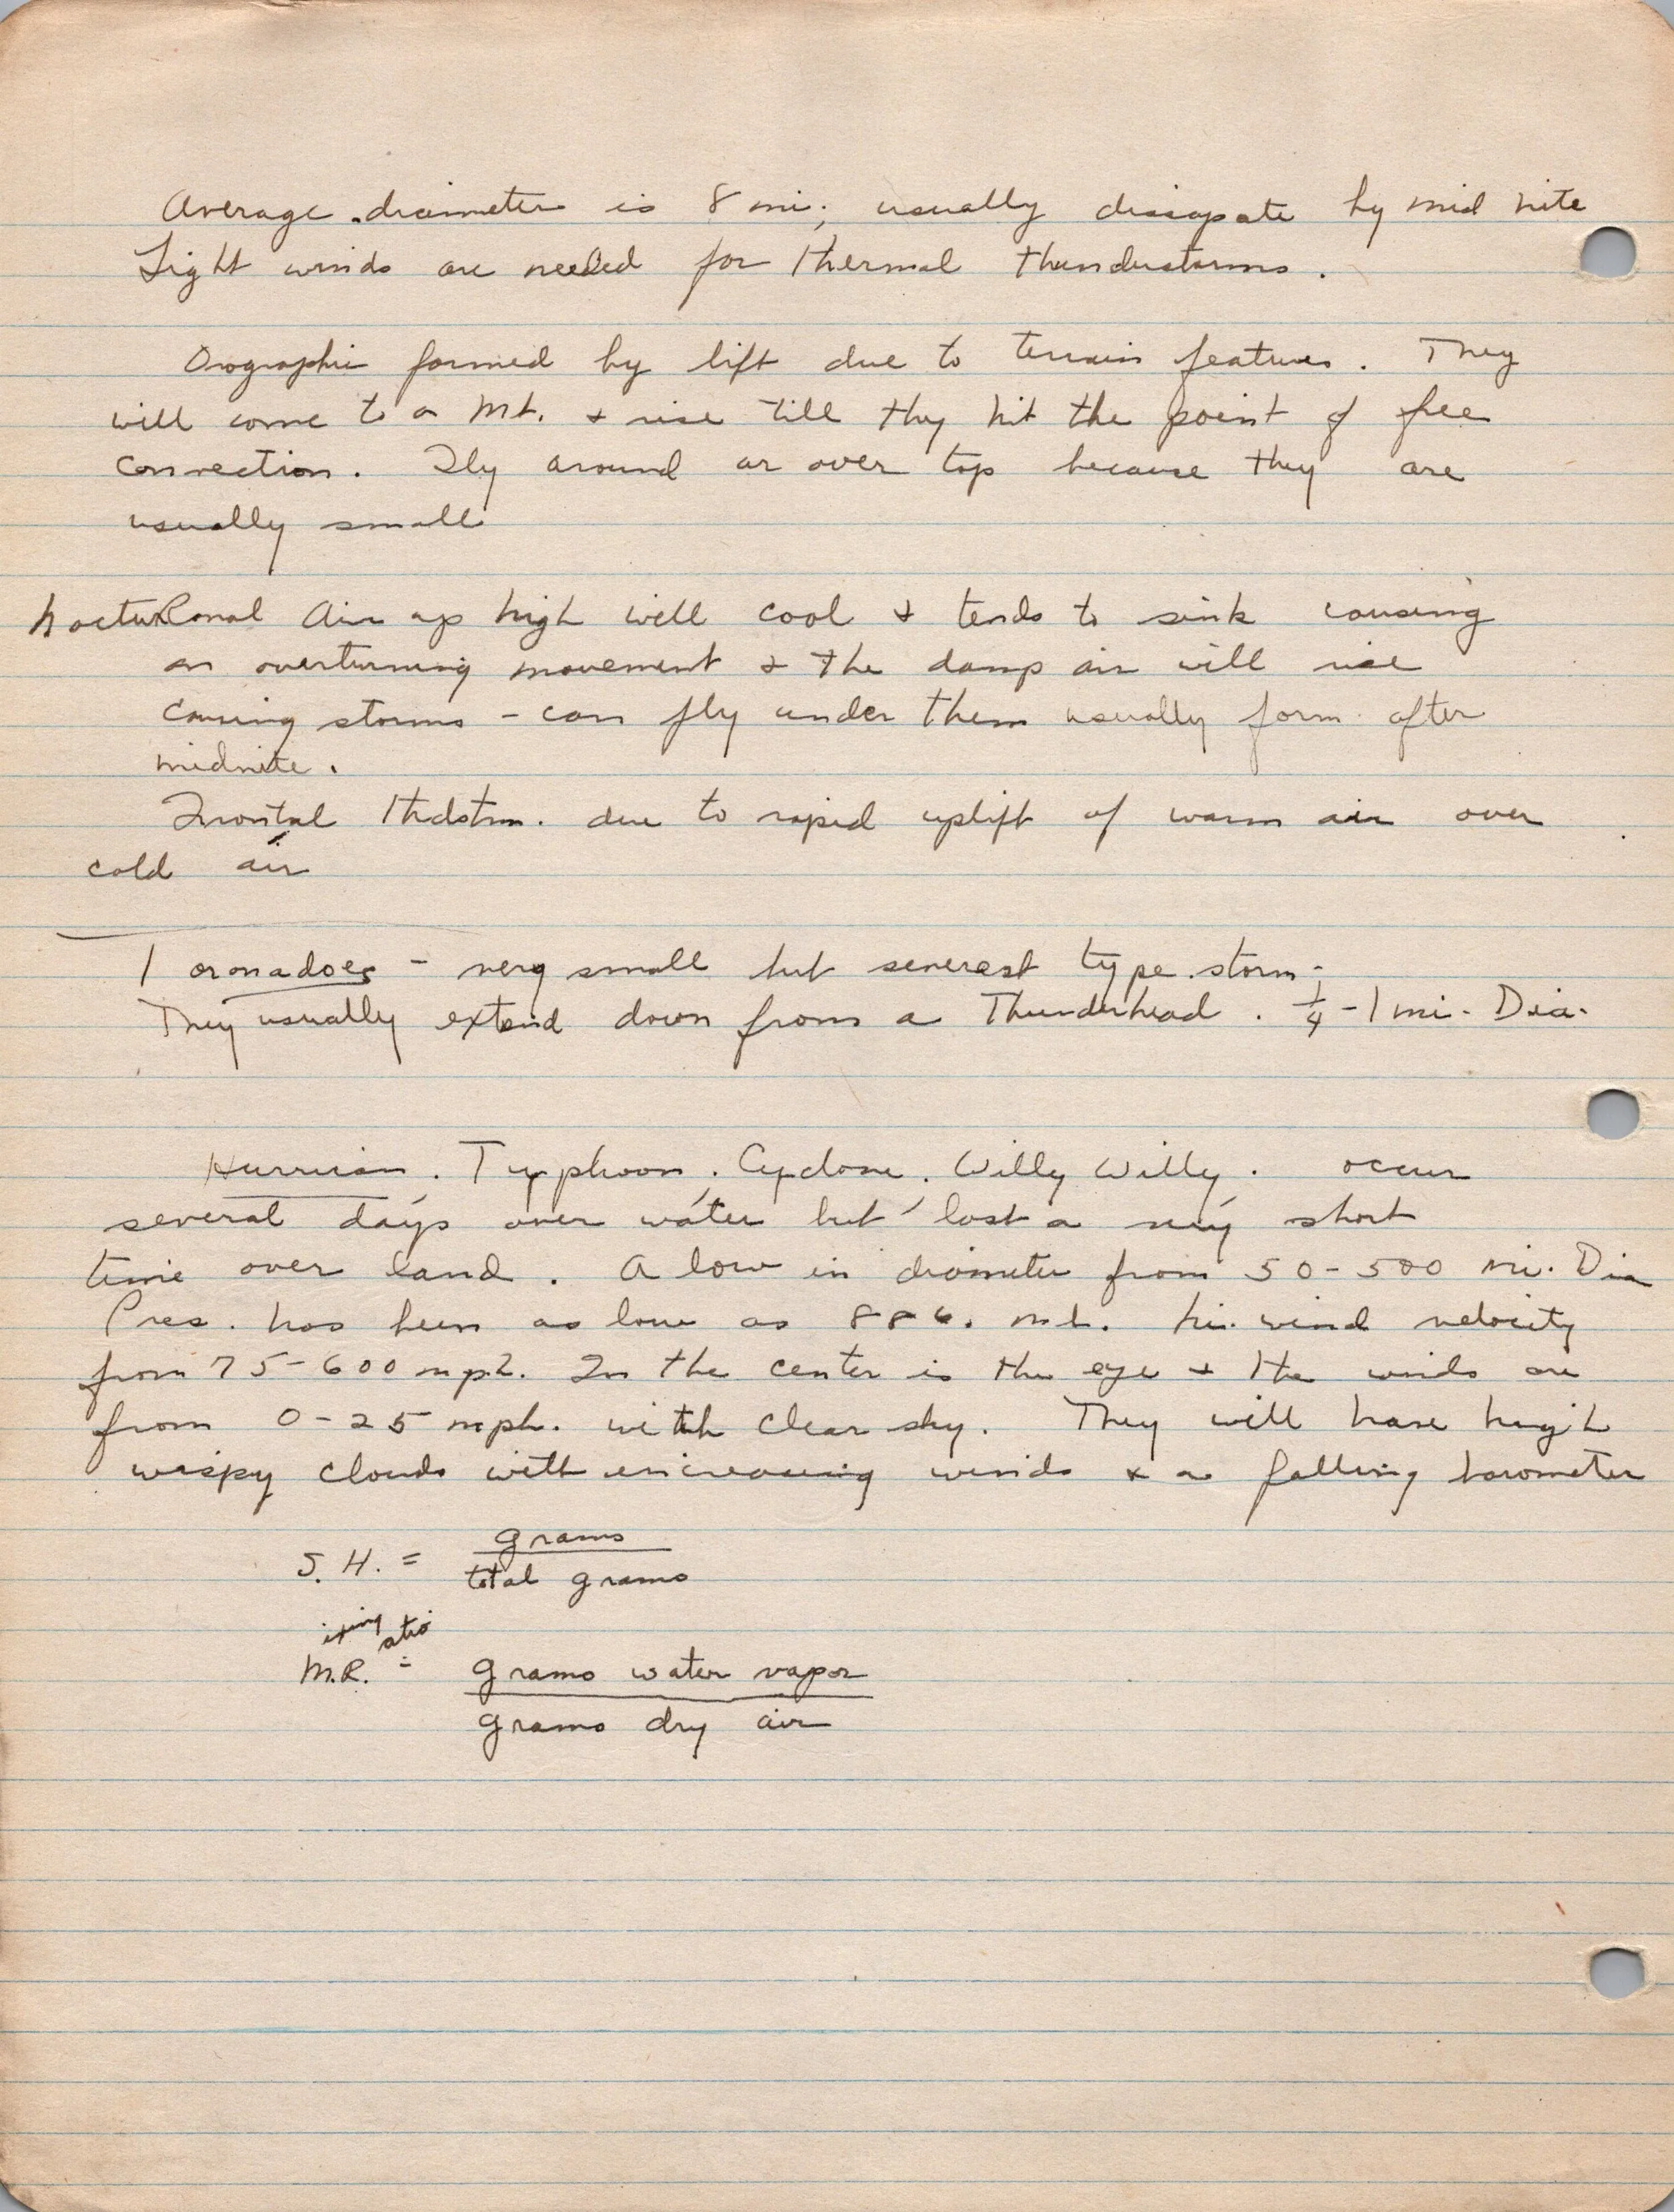 Average diameter is 8 mi; usually dissapate by mid nite
Light winds are needed for thermal thunderstorms.
Orographic formed by lift due to terrain features. They
will come to a Mt. + rise till they hit the point of free
convection. Fly around or over top because they are
usually small
nocturnal Air up high will cool + tends to sink causing
an overturning movement + the damp air will rise
causing storms - can fly under them usually form after
midnite.
Frontal thdstm. due to rapid uplift of warm air over
cold air
Toronadoes - very small but severest type storm -
They usually extend down from a Thunderhead. 1/4 - 1 mi. Dia.
Hurrican. Typhoon. Cyclone. Willy Willy. occur
several days over water but last a very short
time over land. A low in diameter from 50-500 mi. Dia
Pres. has been as low as 886. mb. hi. wind velocity
from 75-600 mph. In the center is the eye + the winds are
from 0-25 mph. with clear sky. They will have high
wispy clouds with increasing winds + a falling barometer
S.H. = grams
total grams
ixing atio
M.R. = grams water vapor
grams dry air